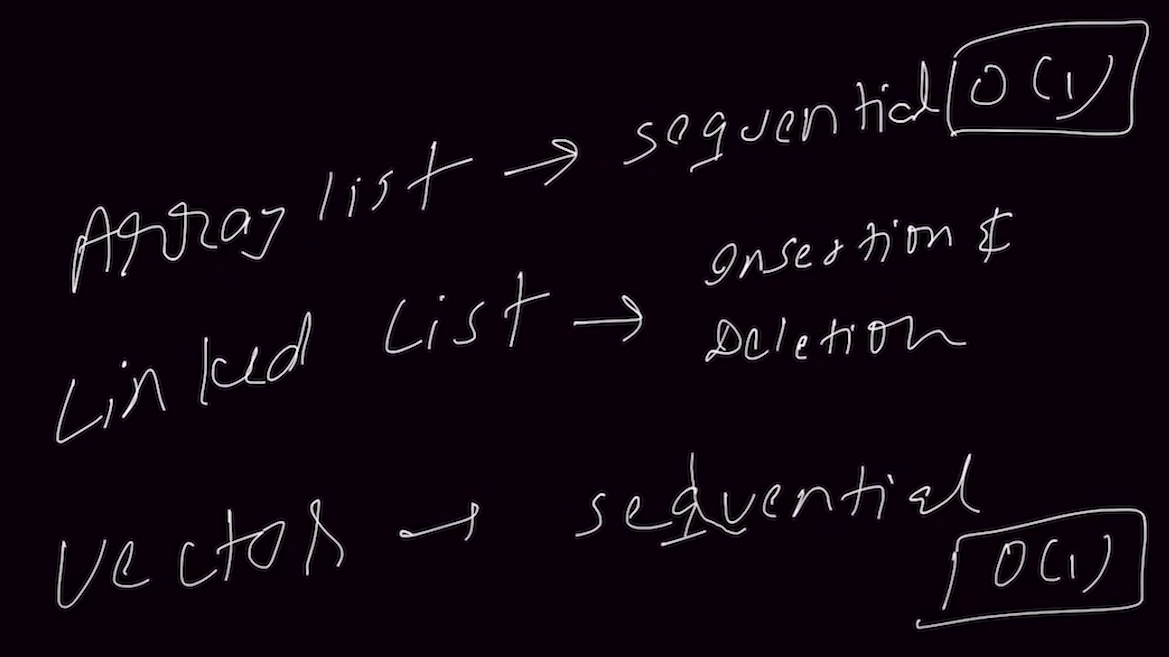 Array list → sequential O(1)
Linked List → Insertion &
Deletion
Vector → sequential
O(1)